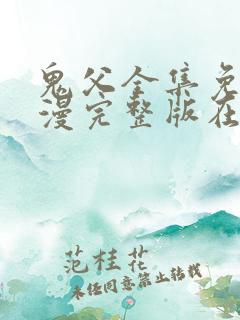 鬼父全集免
漫完整版在
范桂花
未经同意禁止转载